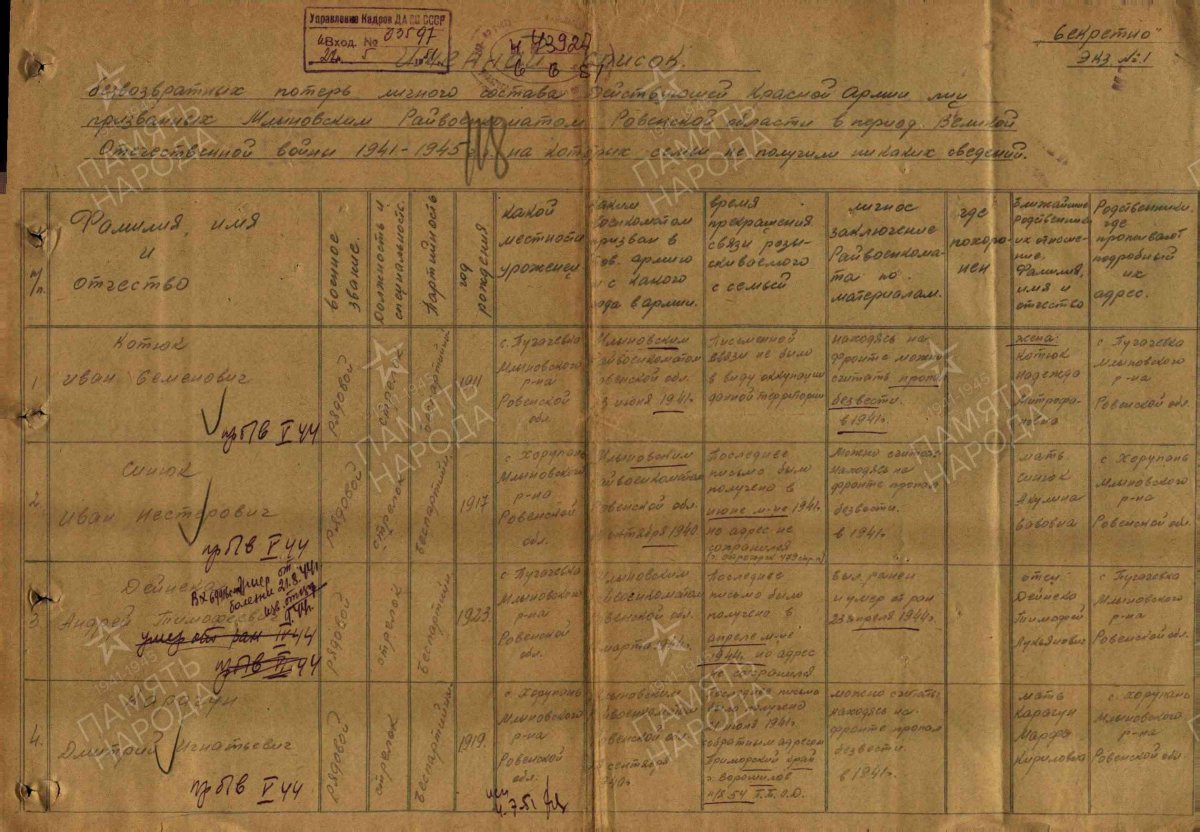 Управление Кадров ДА СССР
Вход. № 03597
"Секретно"
Экз. №1
Именной список.
безвозвратных потерь личного состава Действующей Красной Армии
призванных Млыновским Райвоенкоматом Ровенской области в период Великой
Отечественной войны 1941-1945 на которых семьи не получили никаких сведений.
п/п.
Фамилия, имя
и
отчество
военное
звание
Должность и
специальность.
Партийность
год
рождения
какой
местности
уроженец
каким
военкоматом
призван в
Сов. армию
и с какого
года в армии.
время
прекращения
связи разы-
скиваемого
с семьей
личное
заключение
Райвоенкома-
та по
материалам.
где
похоро-
нен
Ближайшие
родственни-
их отноше-
ние,
Фамилия,
имя и
отчество
Родственники
где
проживают
подробный
их
адрес.
1.
Котюк
Иван Семенович
пр б/в V 44
рядовой
стрелок
беспартийный
1911
с. Пугачевка
Млыновского
р-на
Ровенской
обл.
Млыновским
райвоенкоматом
Ровенской обл.
июня 1941г.
Письменной
связи не было
в виду оккупации
данной территории
находясь на
фронте можно
считать пропа
безвести.
в 1941г.
жена:
Котюк
Надежда
Митрофа-
новна
с Пугачевка
Млыновского
р-на
Ровенской обл.
2
Синюк
Иван Нестерович
пр б/в V 44
рядовой
стрелок
беспартийный
1917
с. Хорупань
Млыновского
р-на
Ровенской
обл.
Млыновским
райвоенкоматом
Ровенской обл.
октября 1940
Последнее
письмо было
получено в
июне м-це 1941г.
но адрес не
сохранился
Можно считать
находясь на
фронте пропал
безвести.
в 1941г.
мать
Синюк
Акулина
с Хорупань
Млыновского
р-на
Ровенской обл.
3
Дейнека
Андрей Тимофеевич
умер от
болезни 21.8.44г.
умер от ран IV 44
пр б/в V 44
рядовой
стрелок
беспартийный
1923
с. Пугачевка
Млыновского
р-на
Ровенской
обл.
Млыновским
райвоенкоматом
Ровенской обл.
марта
Последнее
письмо было
получено в
апреле м-це
1944г. но адрес
не сохранился
был ранен
и умер от ран
23 апреля 1944г.
отец
Дейнека
Тимофей
Лукьянович
с Пугачевка
Млыновского
р-на
Ровенской обл.
4.
Карагун
Дмитрий Игнатьевич
пр б/в V 44
рядовой
стрелок
беспартийный
1919.
с. Хорупань
Млыновского
р-на
Ровенской
обл.
Млыновским
райвоенкоматом
Ровенской обл.
сентября
1940г.
Последнее письмо
было получено
июня 1941г.
обратным адресом
Приморский край
г. Ворошилов
можно считать
находясь на
фронте пропал
безвести.
в 1941г.
мать
Карагун
Марфа
Кириловна
с. Хорупань
Млыновского
р-на
Ровенской обл
4.7.51
ПАМЯТЬ
НАРОДА
1941-1945